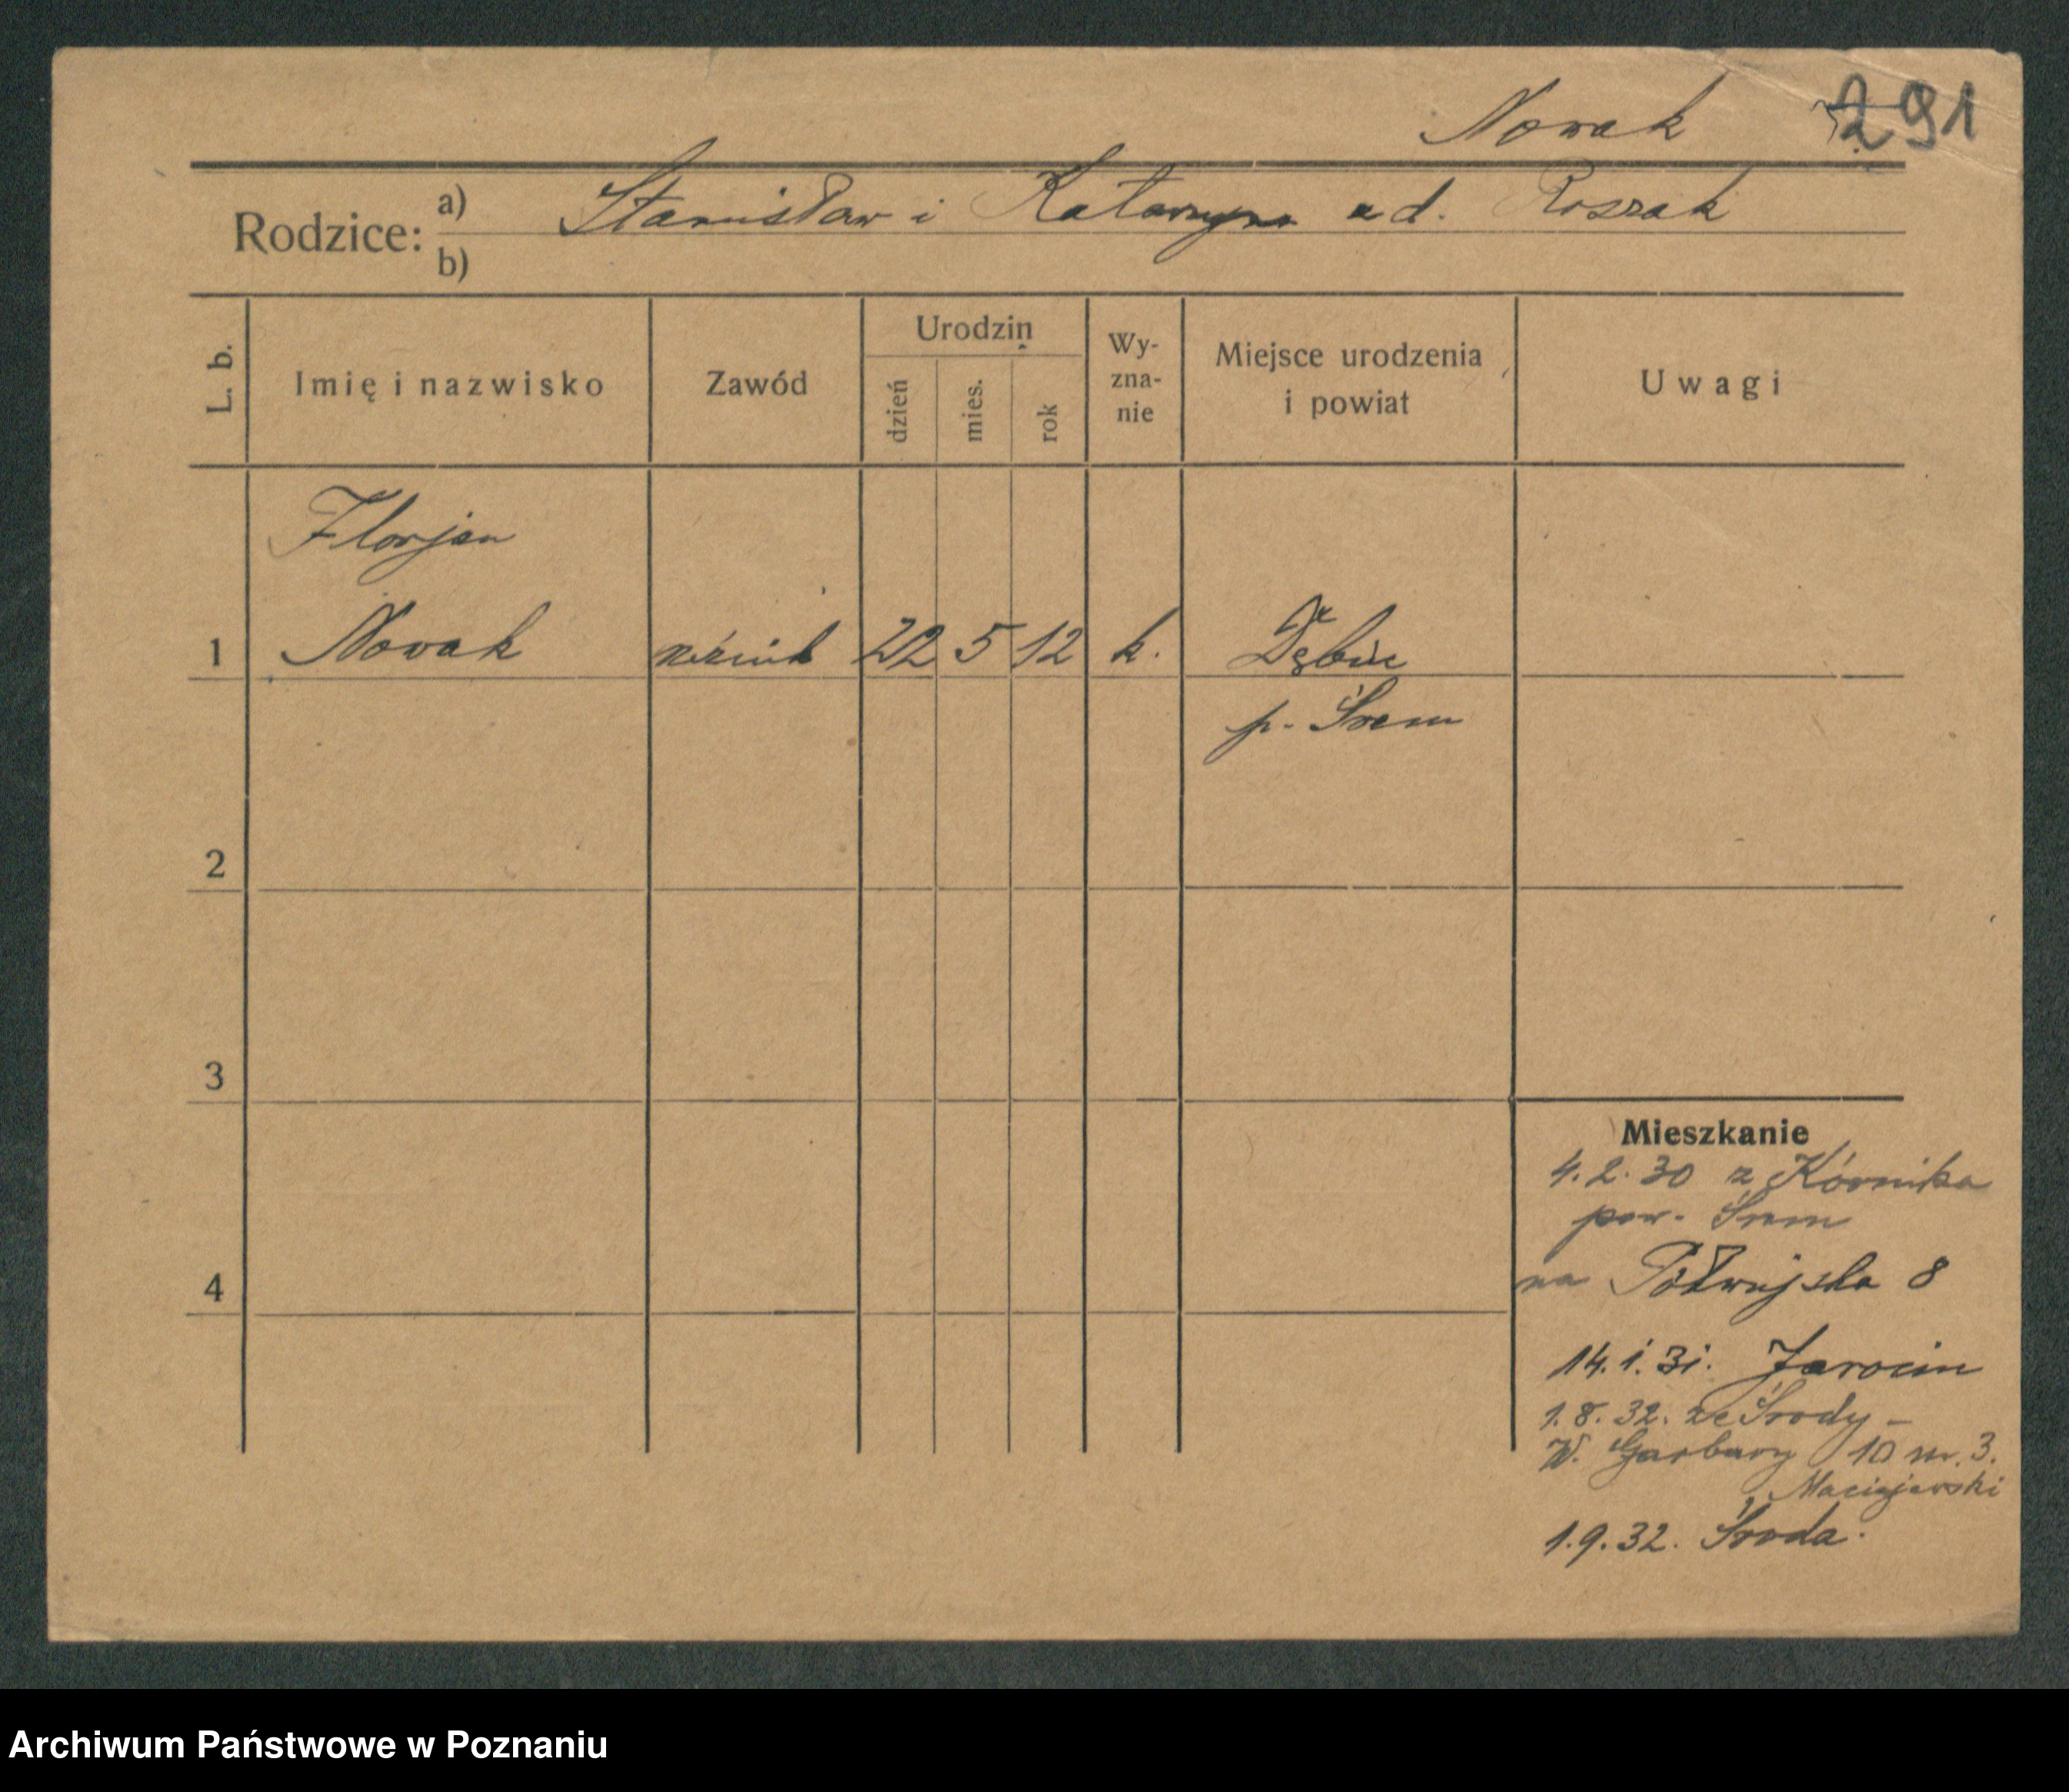 Nowak 291
Rodzice: a) Stanisław i Katarzyna z d. Roszak
b)
L. b. Imię i nazwisko Zawód Urodzin dzień mies. rok Wyznanie Miejsce urodzenia i powiat Uwagi
Florjan
1 Nowak rzeźnik 22 5 12 k. Dębiec
p. Śrem
2
3
Mieszkanie
4.2.30 z Kórnika
pow. Śrem
4 na Półwiejska 8
14.1.31. Jarocin
1.8.32. ze Środy -
W. Garbary 10 m. 3.
Maciejewski
1.9.32. Środa.
Archiwum Państwowe w Poznaniu